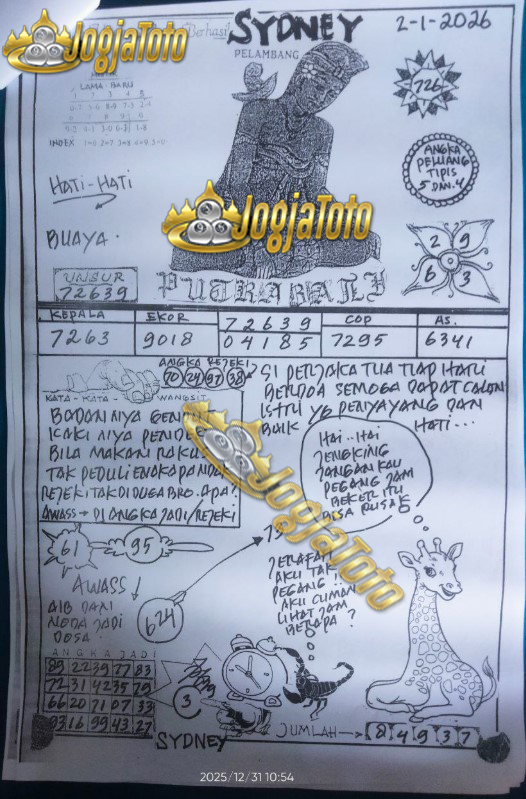 JogjaToto
Berhasil
SYDNEY
2-1-2026
PELAMBANG
LAMA - BARU
INDEX
726
ANGKA
PELUANG
TIPIS
5 DAN.4
HATI-HATI
BUAYA.
JogjaToto
2 9
6 3
UNSUR
72639
PUTRA BALI
KEPALA
EKOR
72639
COP
AS.
7263
9018
04185
7295
6341
ANGKA REJEKI
70 24 97 38
SI PERJAKA TUA TIAP HARI
BERDOA SEMOGA DAPAT CALON
ISTRI YG PENYAYANG DAN
BAIK HATI...
KATA - KATA - WANGSIT
BADAN NYA
KAKI NYA
BILA MAKAN
TAK PEDULI ENAK APA
REJEKI TAK DI DUGA BRO. APA?
AWASS → DI ANGKA JADI/REJEKI
HAI..HAI
JENGKING
JANGAN KAU
PEGANG JAM
BEKER ITU
BISA RUSAK
JogjaToto
61
95
AWASS!
AIB DAN
NODA JADI
DOSA.
624
JERAFAH
AKU TAK
PEGANG!!
AKU CUMAN
LIHAT JAM
BERAPA?
ANGKA JADI
89 22 39 77 83
72 31 42 35 79
66 20 71 07 33
93 16 99 43 27
3
SYDNEY
JUMLAH → 8 4 9 3 7
2025/12/31 10:54